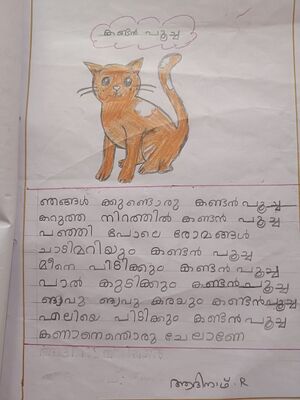 കണ്ടൻ പൂച്ച
ഞങ്ങൾ ക്കുണ്ടൊരു കണ്ടൻ പൂച്ച
കറുത്ത നിറത്തിൽ കണ്ടൻ പൂച്ച
പഞ്ഞി പോലെ രോമങ്ങൾ
ചാടിമറിയും കണ്ടൻ പൂച്ച
മീനെ പിടിക്കും കണ്ടൻ പൂച്ച
പാൽ കുടിക്കും കണ്ടൻ പൂച്ച
കരയും കണ്ടൻ പൂച്ച
എലിയെ പിടിക്കും കണ്ടൻ പൂച്ച
കണാനെന്തൊരു ചേലാണേ
ആദിനാഥ്. R